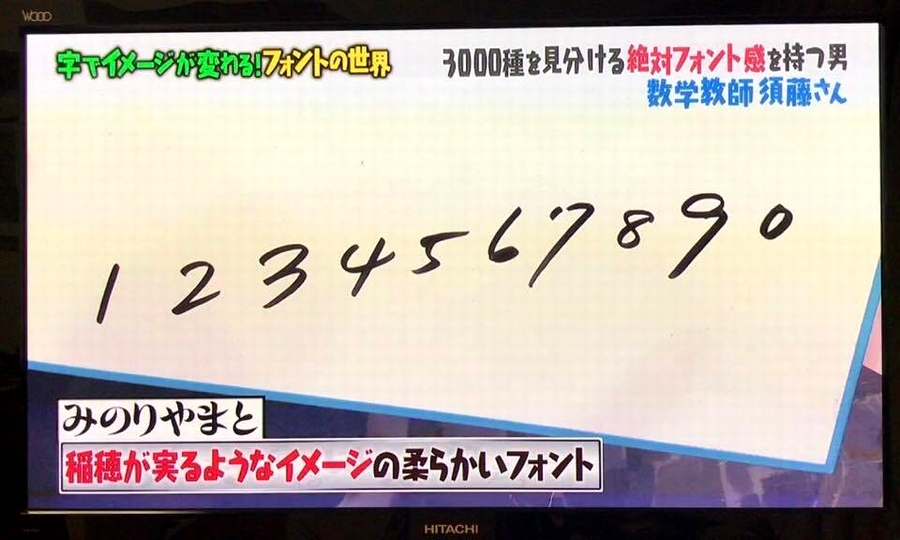 WOOO
字でイメージが変わる!フォントの世界
3000種を見分ける絶対フォント感を持つ男
数学教師 須藤さん
1 2 3 4 5 6 7 8 9 0
みのりやまと
稲穂が実るようなイメージの柔らかいフォント
HITACHI